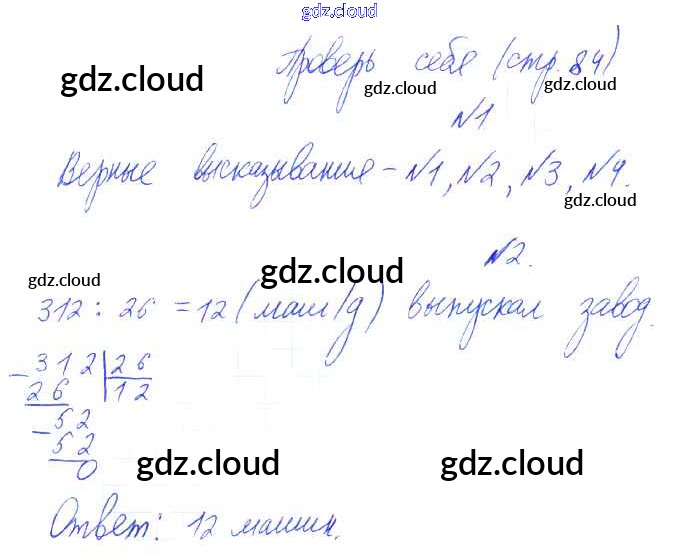 gdz.cloud
Проверь себя (стр. 84)
gdz.cloud
gdz.cloud
№1
Верные высказывания - №1, №2, №3, №4.
gdz.cloud
№2.
gdz.cloud
gdz.cloud
312 : 26 = 12 (маш/д) выпускал завод.
gdz.cloud
- 312 | 26
26 | 12
- 52
52
0
gdz.cloud
gdz.cloud
Ответ: 12 машин.